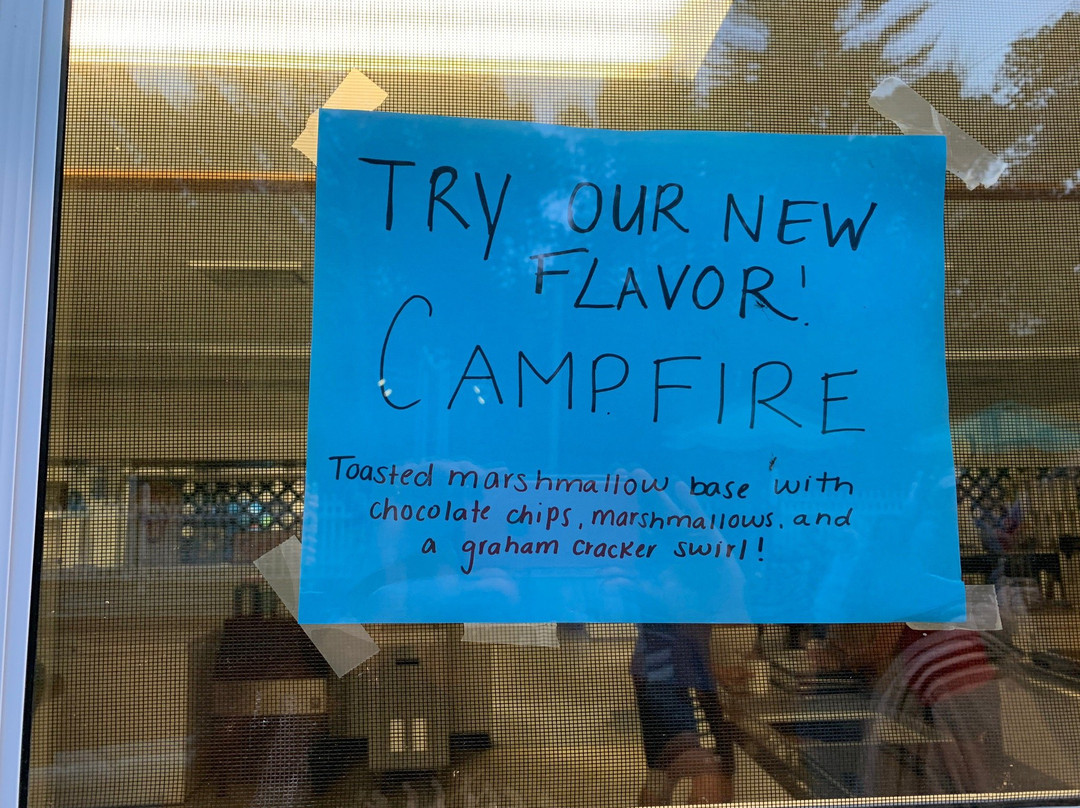 TRY OUR NEW
FLAVOR!
CAMPFIRE
Toasted marshmallow base with
chocolate chips, marshmallows, and
a graham cracker swirl!